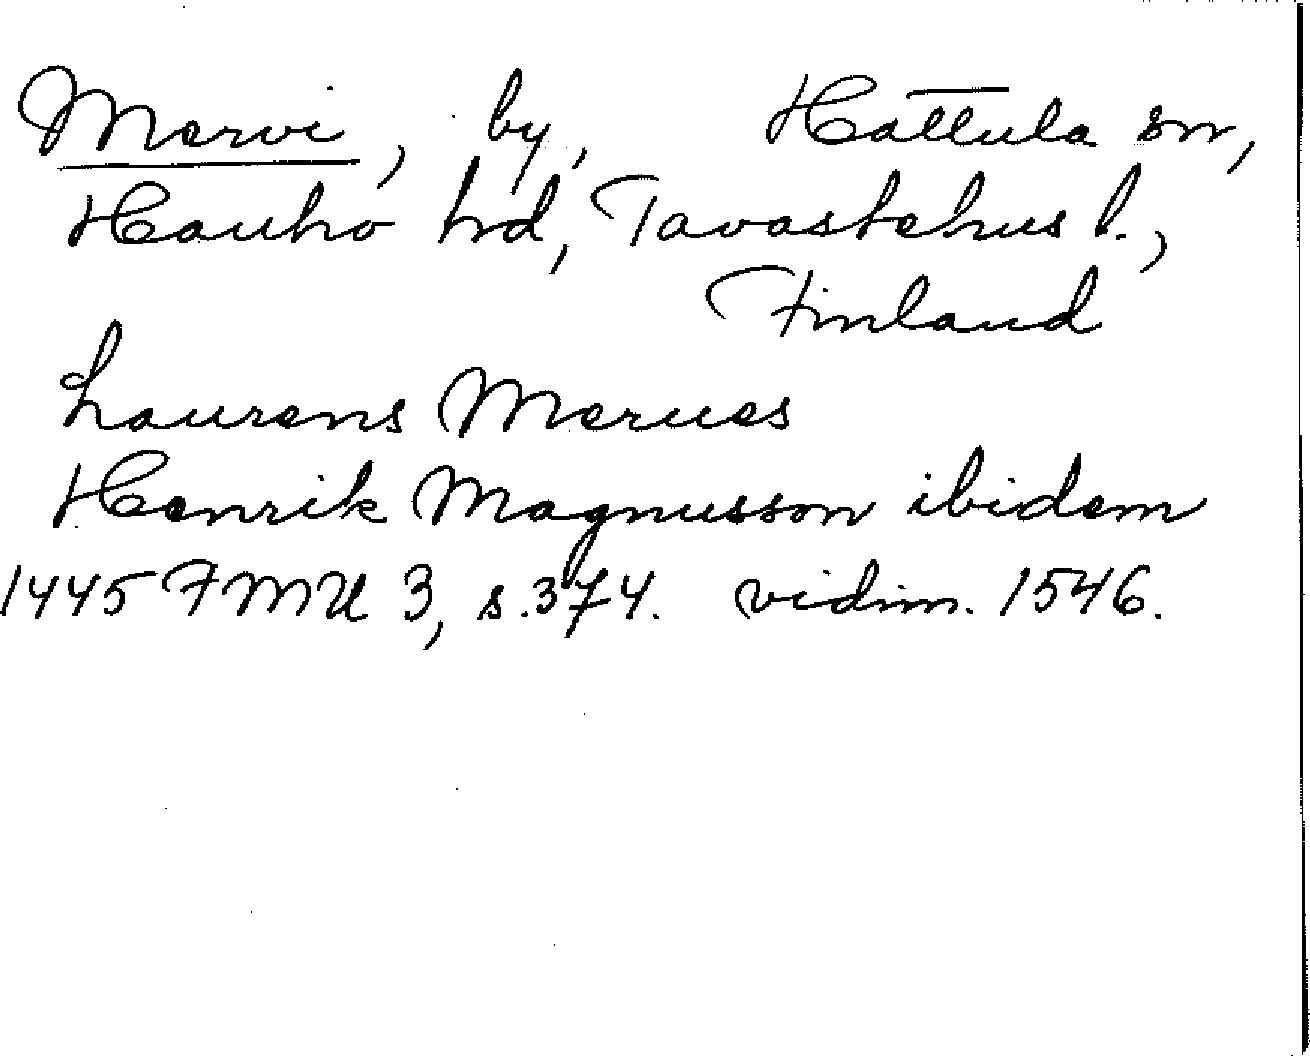 Mervi, by, Hattula sn,
Hauho hd, Tavastehus l.,
Finland
Laurens Merues
Henrik Magnusson ibidem
1445 FMU 3, s.374. vidim. 1546.